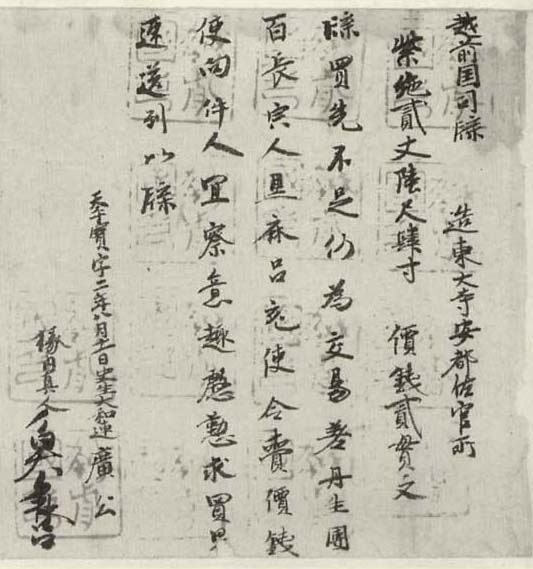 越前国司牒 造東大寺安都佐官所
紫絁貳丈陸尺肆寸 價銭貳貫文
牒買先不足仍為交易差丹生團
百長宍人黒麻呂充使令賷價銭
使向件人宜察意趣慇懃求買早
速送到以牒
天平寳字二年八月 日史生大初位 廣公
掾内真人魚麻呂